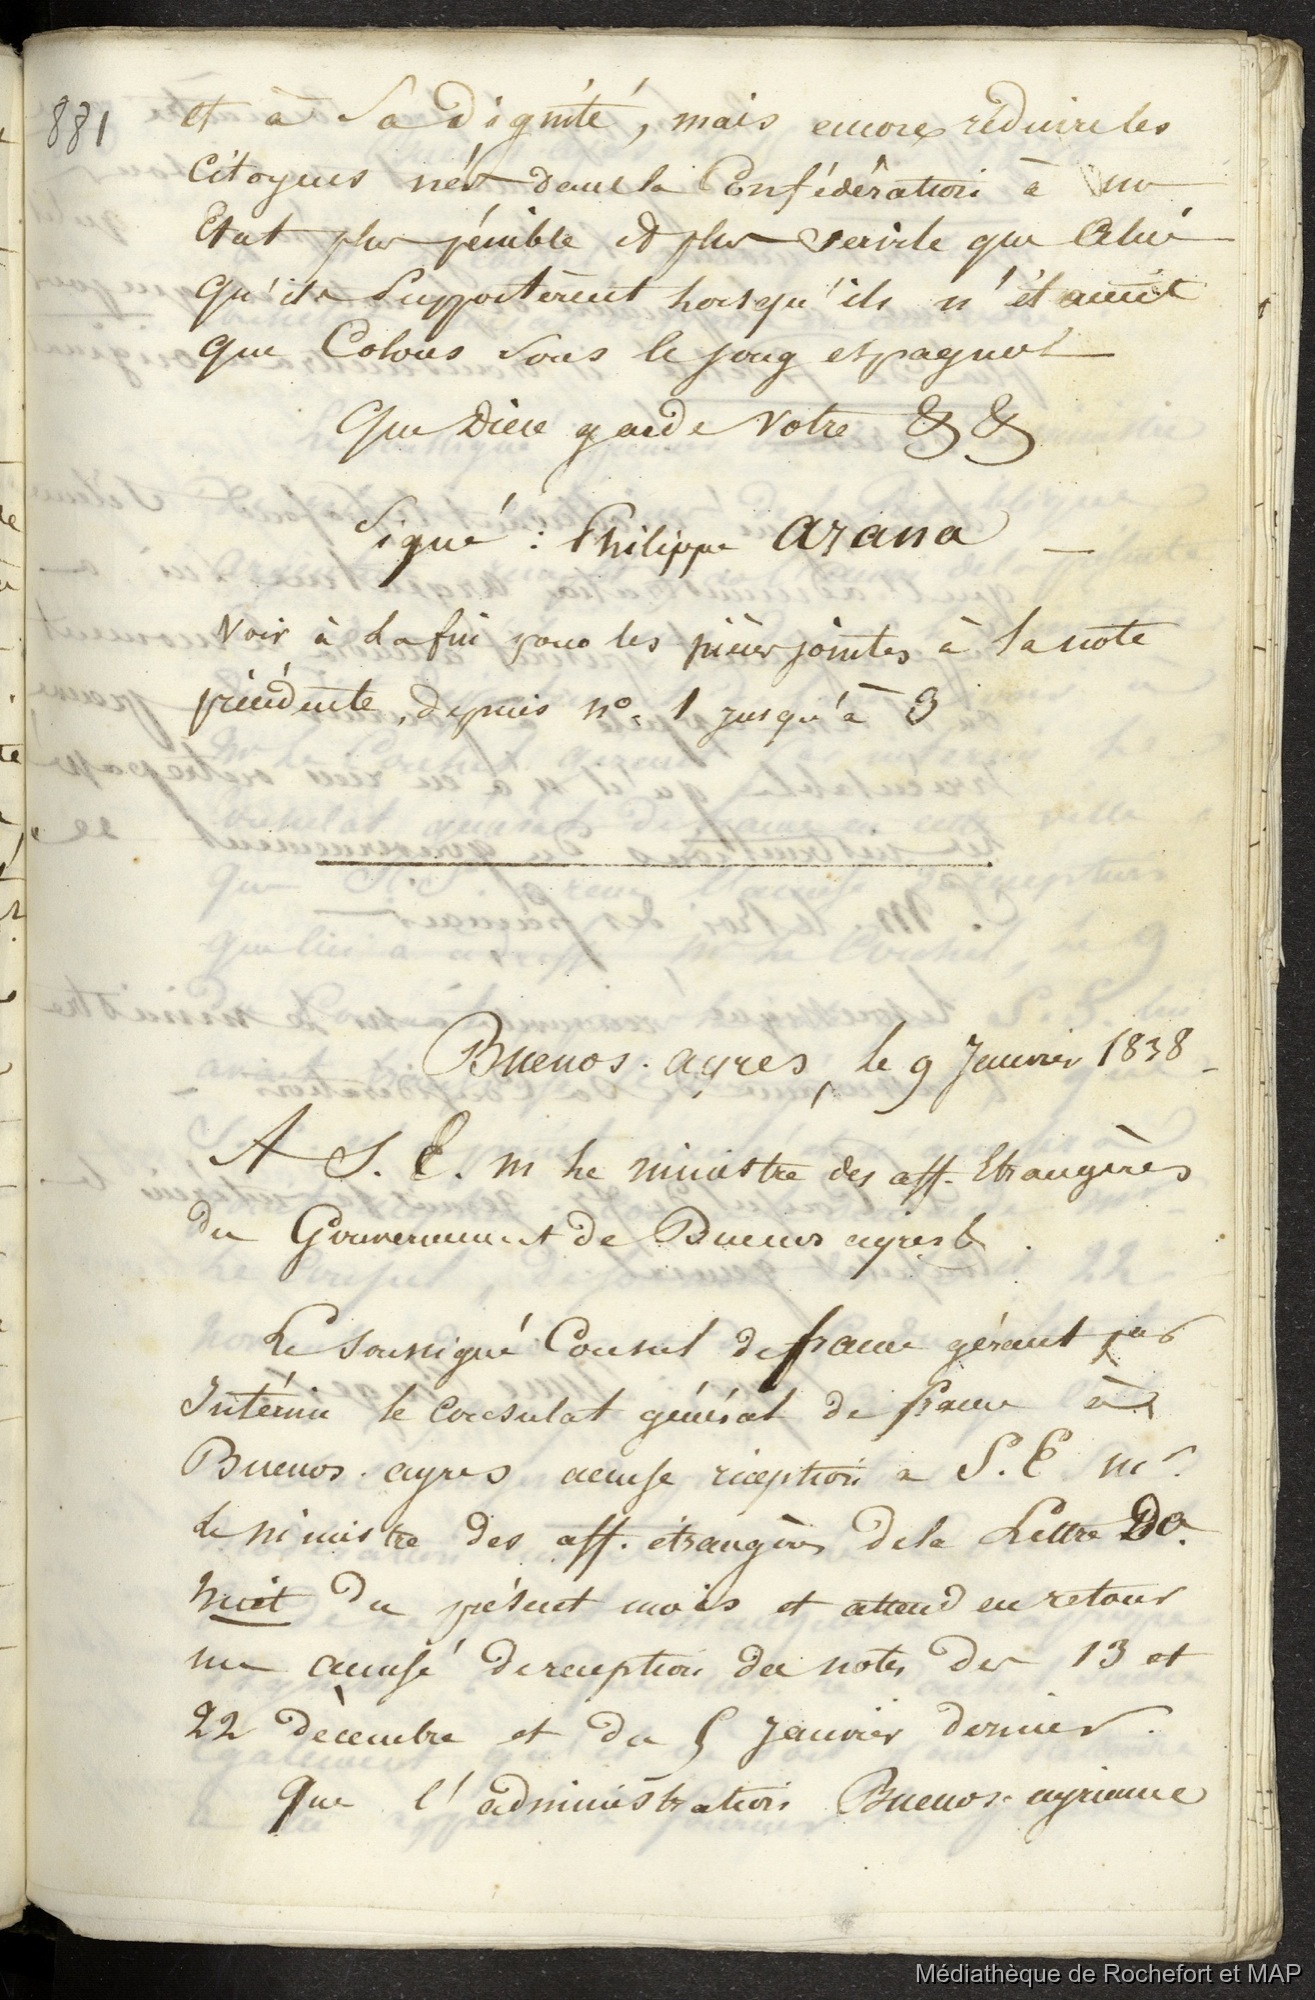 881
et à Sa Dignité, mais encore réduire les
Citoyens nés dans la Confédération à un
Etat plus pénible et plus servile que Celui
qu'ils Supportèrent lorsqu'ils n'étaient
que Colons sous le joug espagnol
Que Dieu garde Votre & &
Signé : Philippe Arana
Voir à la fin pour les pièces jointes à la note
précédente, depuis n° 1 jusqu'à 3
Buenos-ayres, le 9 Janvier 1838
A S. E. M le ministre des aff. Etrangères
du Gouvernement de Buenos ayres &.
Le Soussigné Consul de france gérant par
Intérim le consulat général de france à
Buenos-ayres accuse réception à S. E Mr.
le ministre des aff. étrangères de la Lettre Do.
huit du présent mois et attend en retour
un accusé de réception des notes des 13 et
22 décembre et du 5 Janvier dernier.
Que l'administration Buenos-ayrienne
Médiathèque de Rochefort et MAP